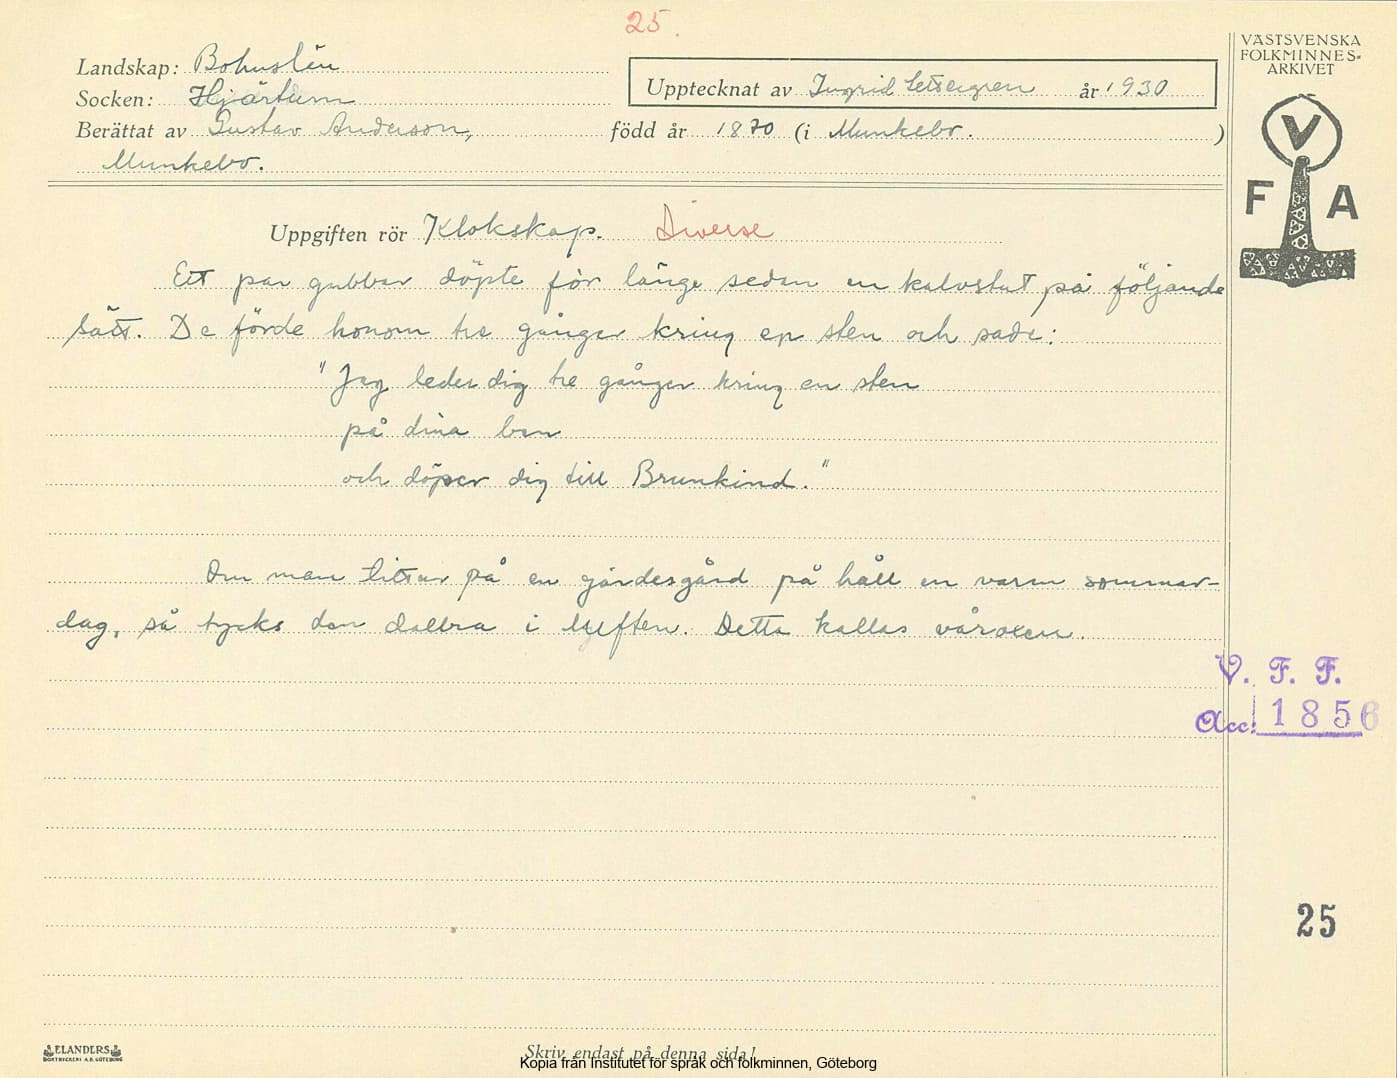 25.
VÄSTSVENSKA
FOLKMINNES=
ARKIVET
Landskap: Bohuslän
Upptecknat av Ingrid år 1930
Socken: Hjärtum
Berättat av Gustav Anderson, född år 1870 (i Munkebo. )
Munkebo.
V
F A
Uppgiften rör Klokskap. Diverse
Ett par gubbar döpte för länge sedan en kalvstut på följande
sätt. De förde honom tre gånger kring en sten och sade:
"Jag leder dig tre gånger kring en sten
på dina ben
och döper dig till Brunkind."
Om man tittar på en gärdesgård på håll en varm sommar-
dag, så tycks den dallra i luften. Detta kallas våroxen.
V. F. F.
Acc: 1856
25
ELANDERS
BOKTRYCKERI A.B. GÖTEBORG
Skriv endast på denna sida!
Kopia från Institutet för språk och folkminnen, Göteborg